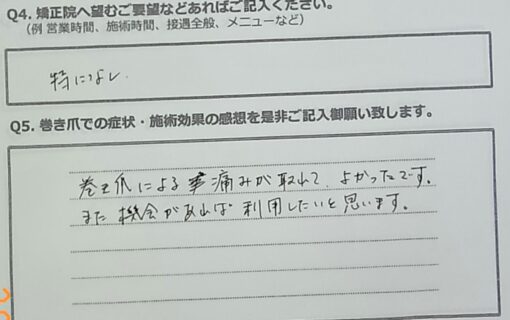 Q4. 矯正院へ望むご要望などあればご記入ください。
（例 営業時間、施術時間、接遇全般、メニューなど）
特になし
Q5. 巻き爪での症状・施術効果の感想を是非ご記入御願い致します。
巻き爪による 痛みが取れて、よかったです。
また 機会があれば 利用したいと思います。